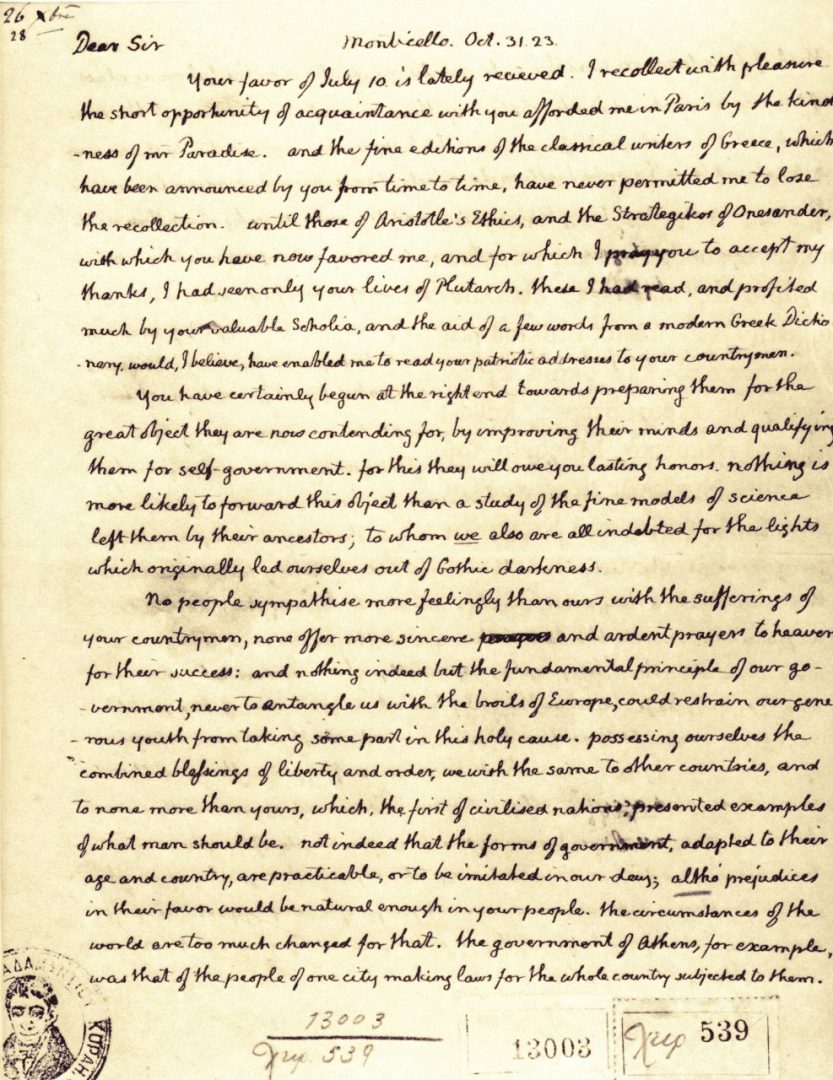 26 Xbre
28
Dear Sir Monticello. Oct. 31. 23.
Your favor of July 10. is lately recieved. I recollect with pleasure
the short opportunity of acquaintance with you afforded me in Paris by the kind
-ness of mr Paradise. and the fine editions of the classical writers of Greece, which
have been announced by you from time to time, have never permitted me to lose
the recollection. until those of Aristotle's Ethics, and the Strategikos of Onesander,
with which you have now favored me, and for which I pray you to accept my
thanks, I had seen only your lives of Plutarch. these I had read, and profited
much by your valuable Scholia, and the aid of a few words from a modern Greek Dictio
-nary would, I believe, have enabled me to read your patriotic addresses to your countrymen.
You have certainly begun at the right end towards preparing them for the
great object they are now contending for, by improving their minds and qualifying
them for self-government. for this they will owe you lasting honors. nothing is
more likely to forward this object than a study of the fine models of science
left them by their ancestors; to whom we also are all indebted for the lights
which originally led ourselves out of Gothic darkness.
No people sympathise more feelingly than ours with the sufferings of
your countrymen, none offer more sincere and ardent prayers to heaven
for their success: and nothing indeed but the fundamental principle of our go-
-vernment, never to entangle us with the broils of Europe, could restrain our gene
-rous youth from taking some part in this holy cause. possessing ourselves the
combined blessings of liberty and order, we wish the same to other countries, and
to none more than yours, which, the first of civilised nations, presented examples
of what man should be. not indeed that the forms of government, adapted to their
age and country, are practicable, or to be imitated in our day; altho' prejudices
in their favor would be natural enough in your people. the circumstances of the
world are too much changed for that. the government of Athens, for example,
was that of the people of one city making laws for the whole country subjected to them.
13003
Χειρ. 539
13003
Χειρ 539
ΑΔΑΜ ΚΟΡΑΗ